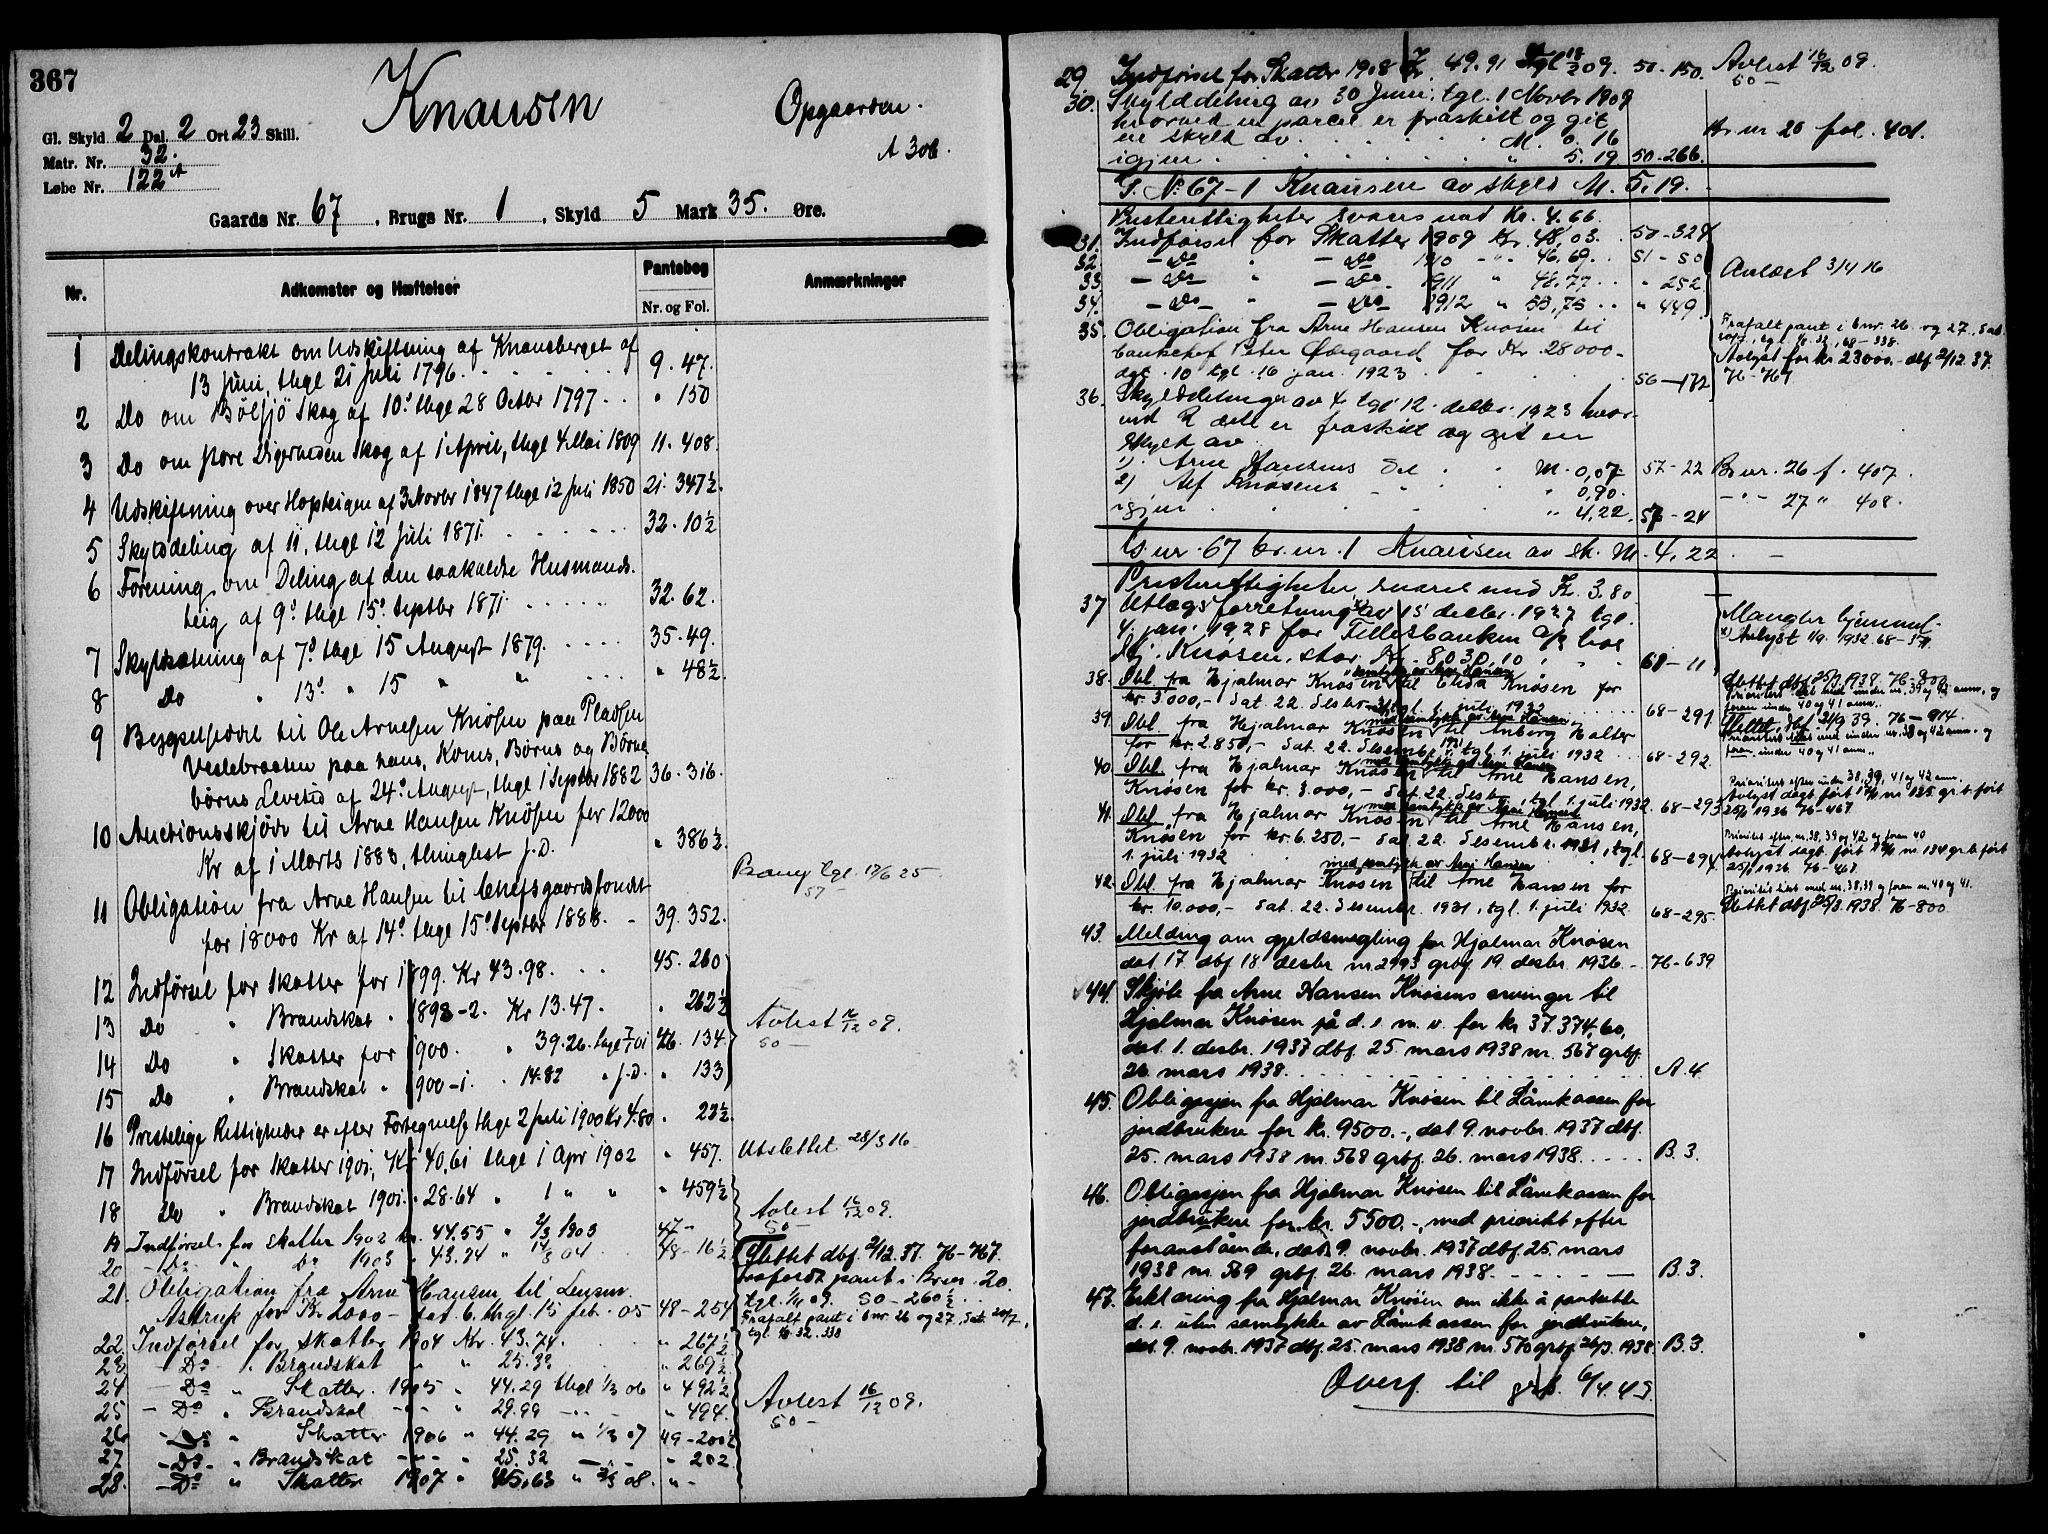 367
Knausen
Opgaarden.
A 306.
Gl. Skyld 2 Dal. 2 Ort 23 Skill.
Matr. Nr. 32.
Løbe Nr. 122 A
Gaards Nr. 67, Brugs Nr. 1, Skyld 5 Mark 35. Øre.
Nr. Adkomster og Hæftelser Pantebog Nr. og Fol. Anmærkninger
1 Delingskontrakt om Udskiftning af Knausberget af
13 Juni, thgl 21 Juli 1796. 9. 47.
2 Do om Bölsjö Skog af 10d thgl 28 Octbr 1797 " 150
3 Do om store Digerheden Skog af 1 April, thgl 4 Mai 1809 11. 408.
4 Udskiftning over Hopsteigen af 3 Novbr 1847 thgl 12 Juli 1850 21. 347½.
5 Skylddeling af 11, thgl 12 Juli 1871. 32. 10½
6 Forening om Deling af den saakaldte Husmands-
teig af 9d thgl 15d Septbr 1871. 32. 62.
7 Skyldsætning af 7d thgl 15 August 1879. 35. 49.
8 Do " 13d " 15 " " " 48½
9 Bygselseddel til Ole Arnesen Knösen paa Pladsen
Veslebraaten paa hans, Kones, Børns og Børne-
børns Levetid af 24d August, thgl 1 Septbr 1882 36. 316.
10 Auctionsskjøde til Arne Hansen Knösen for 12000
Kr af 1 Marts 1883, thinglest s. D. " 386½
11 Obligation fra Arne Hansen til Chefsgaardsfondet
for 18000 Kr af 14d thgl 15d Septbr 1888. 39. 352. tgl. 17/6 25
57 –
12 Indførsel for Skatter for 1899. Kr 43.98. 45. 260
13 Do " Brandskat " 1898-2. Kr 13.47. " 262½ Avlest 16/12 09.
50 –
14 Do " Skatter for 1900. " 39.26. thgl 7/01 46. 134
15 Do " Brandskat " 1900-1. " 14.82 " s. D. " 133
16 Prestelige Rettigheder er efter Fortegnelse thgl 2 Juli 1900 Kr 4.80 " 22½
17 Indførsel for Skatter 1901, Kr 40,61 thgl 1 Apr 1902 " 457. Utslettet 28/3 16
18 Do " Brandskat 1901. " 28.64 " 1 " " " 459½ Avlest 16/12 09.
50 –
19 Indførsel for skatter 1902 kr. 44.55 " 2/3 1903 47 –
20 – Do – " Do 1903 " 43.24 " 14/3 04 48-16½
21. Obligation fra Arne Hansen til Lensm. Slettet dbf. 2/12.37. 76-767.
Astrup for Kr. 2000 – dat. 6. thgl. 15 feb. 05 48-254 frafaldt pant i Brnr. 20.
tgl. 1/11 09. 50-260½
Frafalt pant i bnr. 26 og 27, dat. 20/7,
22 Indførsel for skatter 1904 Kr. 43.74. " 267½
23 – Do – " Brandskat " " 25.32 " 269½
24 – Do " Skatter. 1905 " 44.29 thgl 1/3 06 " 492½
25 – Do " Brandskat -"- " 29.99 – " – " 494. Avlest 16/12 09.
50 –
26 – Do " Skatter 1906 " 44.29 " 1/3 07 49-200½
27 – Do – " Brandskat -"- " 25.32 – " – " 202
28. – Do " Skatter 1907 " 45,63 " 2/3 08. " –
29. Indførsel for Skatter 1908 Kr. 49.91 Tgl 18/2 09. 50-150. Avlest 16/12 09.
50 –
30. Skylddeling av 30 Juni, tgl. 1 Novbr 1909
hvorved en parcel er fraskilt og git
en skyld av M. 0.16 Br nr 20 fol. 401.
igjen " 5.19 50-266.
G. No 67-1 Knausen av skyld M. 5.19.
Presterettigheter svares med Kr. 4.66.
31. Indførsel for Skatter 1909 Kr. 48,03. 50-328
32 – Do " – Do 1910 – " – 46.69. 51-50
33 – Do " – Do 1911 " 48.77 " 252 Avlæst 3/4 16
34. – Do – " – Do – 1912 " 55,75 " 449.
35. Obligation fra Arne Hansen Knøsen til Frafalt pant i bnr. 26 og 27,
banksjef Peter Ødegaard for Kr. 28000 – 68-338.
dat. 10 tgl. 16 jan. 1923 56-172 Avlyst for kr 23000.- dbf 2/12 37.
76-767.
36. Skylddelinger av 4 tgl. 12. desbr. 1923 hvor-
ved 2 dele er fraskilt og git en
skyld av
1) Arne Hansens Del M. 0,07 57-22 Br nr. 26 f. 407.
2) Alf Knøsens " 0,90. – " – 27 " 408.
igjen " 4,22. 57-24
G. nr. 67 br. nr. 1 Knausen av sk. M. 4,22
Presterettigheter svares med Kr. 3.80
37 Utlægsforretning av 15 desbr. 1927 tgl. Mangler hjemmel.
4. jan. 1928 for Fellesbanken A/S hos Avlyst 1/9. 1932. 68-371.
Hj. Knøsen, stor Kr. 8030,10 61-11
38. Obl. fra Hjalmar Knøsen til Elida Knøsen for Slettet dbf. 25/3. 1938. 76-800
kr. 3.000,- dat. 22. desbr. tgl. 1. juli 1932 68-291
39. Obl. fra Hjalmar Knøsen til Anborg Halter Slettet, dbf 39. 76-914.
for kr. 2.850,- dat. 22. desember 1931 tgl. 1. juli 1932 68-292
40. Obl. fra Hjalmar Knøsen til Arne Hansen
Knøsen for kr. 3.000,- dat. 22. desbr. tgl. 1. juli 1932 68-293
41. Obl. fra Hjalmar Knøsen til Arne Hansen
Knøsen for kr. 6.250,- dat 22. desember 1931, tgl.
1. juli 1932 68-294
med samtykke av Arne Hansen
42. Obl. fra Hjalmar Knøsen til Arne Hansen for
kr. 10.000,- dat. 22. desember. 1931, tgl. 1. juli 1932 68-295 Slettet dbf. 25/3. 1938. 76-800.
43. Melding om gjeldsmegling for Hjalmar Knøsen
dat 17. dbf. 18. desbr nr 2993 grbf. 19. desbr. 1936 – 76-639
44. Skjøte fra Arne Hansen Knøsens arvinger til
Hjalmar Knøsen på d. e. m. v. for kr 37.374,60,
dat. 1. desbr. 1937 dbf. 25. mars 1938 nr. 567 grbf.
26. mars 1938. A. 4.
45. Obligasjon fra Hjalmar Knøsen til Lånekassen for
jordbrukere for kr. 9500.-, dat 9. novbr. 1937 dbf.
25. mars 1938 nr. 568 grbf. 26. mars 1938. B. 3.
46. Obligasjon fra Hjalmar Knøsen til Lånekassen for
jordbrukere for kr. 5500.-, med prioritet efter
foranstående, dat. 9. novbr. 1937 dbf. 25. mars
1938 nr. 569 grbf. 26. mars 1938. B. 3.
47. Erklæring fra Hjalmar Knøsen om ikke å pantsette
d. e. uten samtykke av Lånekassen for jordbrukere,
dat. 9. novbr. 1937 dbf. 25. mars 1938 nr 570 grbf. 26/3. 1938. B. 3.
Overf. til grb. 6/4.45.